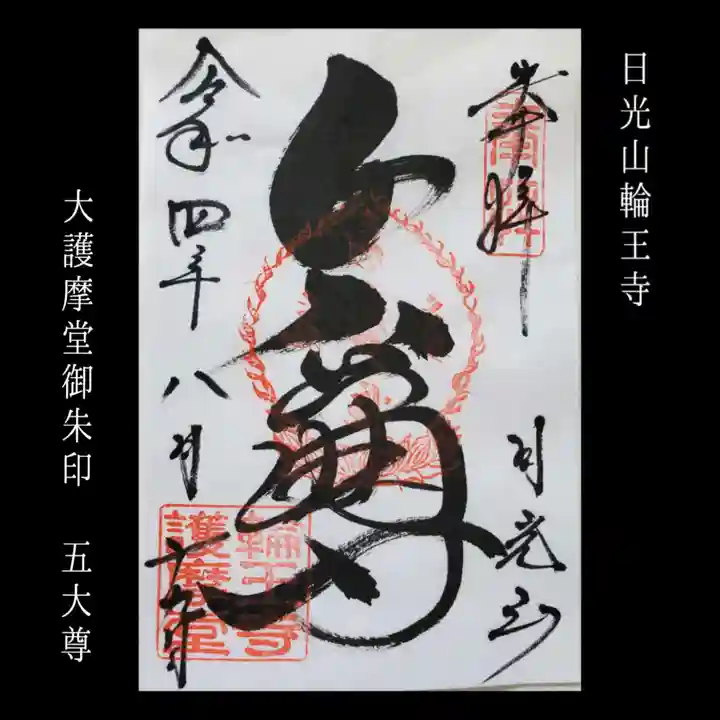 日光山輪王寺
奉拝
日光山
五大尊
令和四年八月
輪王寺
護摩堂
大護摩堂御朱印 五大尊